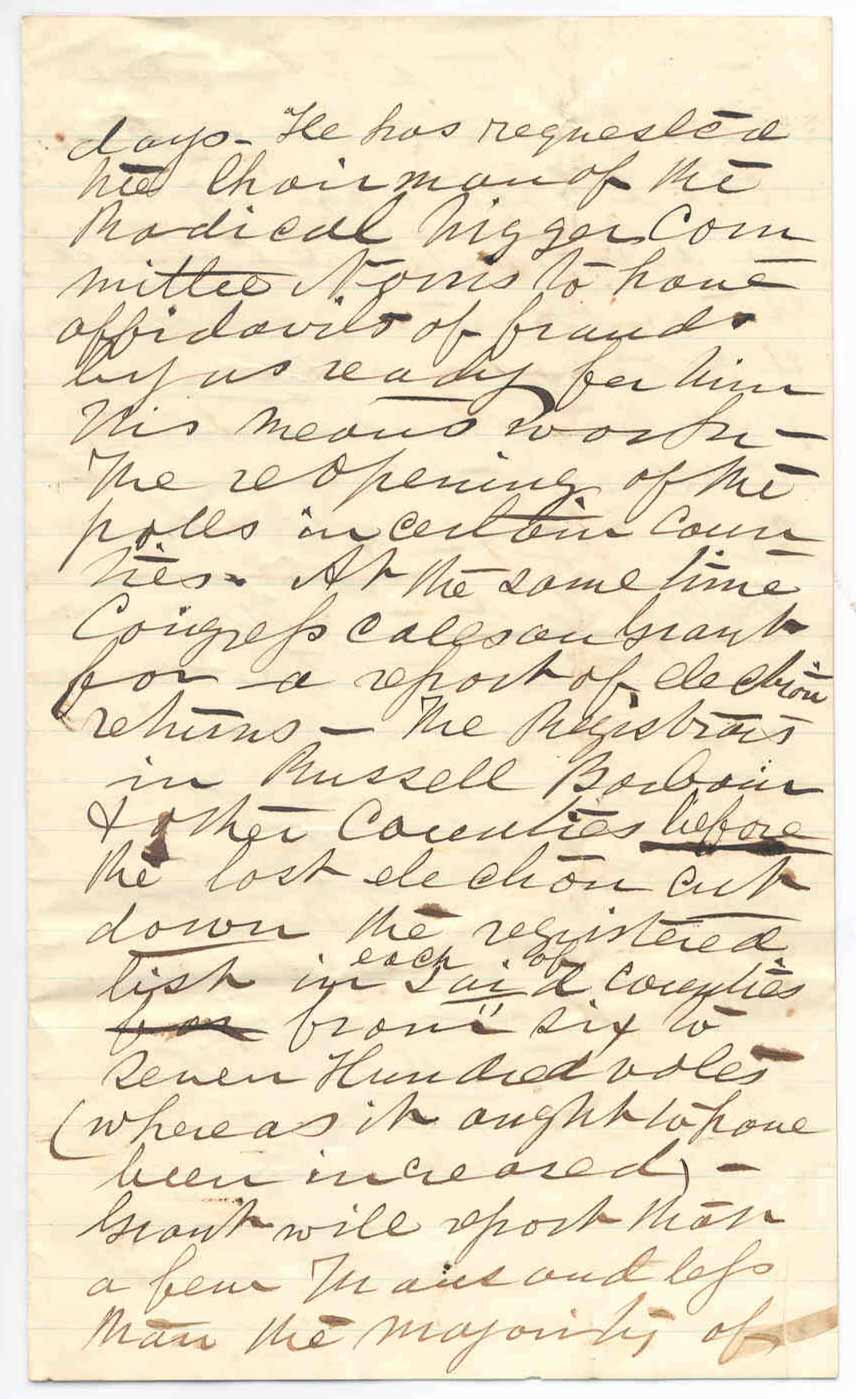 days - He has requested
the Chairman of the
Radical Nigger Com
mittee Norris to have
affidavits of frauds
by us ready for him
This means work -
The reopening of the
polls in certain coun
ties. At the same time
Congress calls on Grant
for a report of election
returns - The Registrars
in Russell Barbour
& other Counties before
the last election cut
down the registered
list in each of said counties
for from six to
seven Hundred votes
(whereas it ought to have
been increased) -
Grant will report than
a few Thousand less
than the majority of